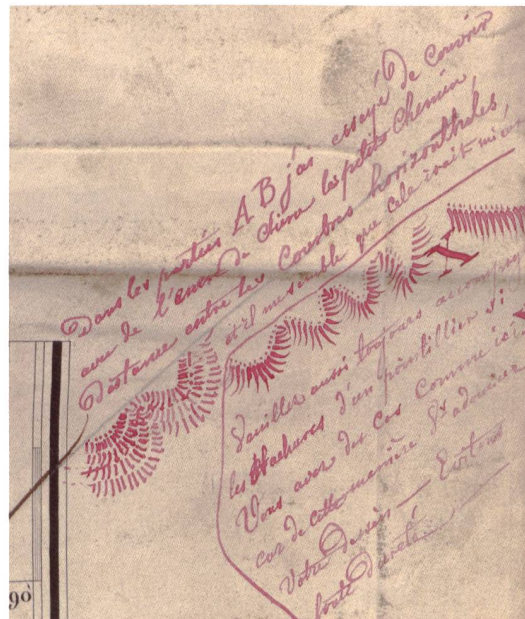 Dans les parties A B j'ai essayé de Couvrir
avec de l'encre de Chine les petits Chemin,
Distance entre les Courbes horizonthales,
et il me semble que cele irait mieu
X
Veuillez aussi toujours accompag
les Hachures d'un pointillier si
Vous avez des Cas Comme ici
car de cette manière
Votre dessin — Evitons
toute dureté
90